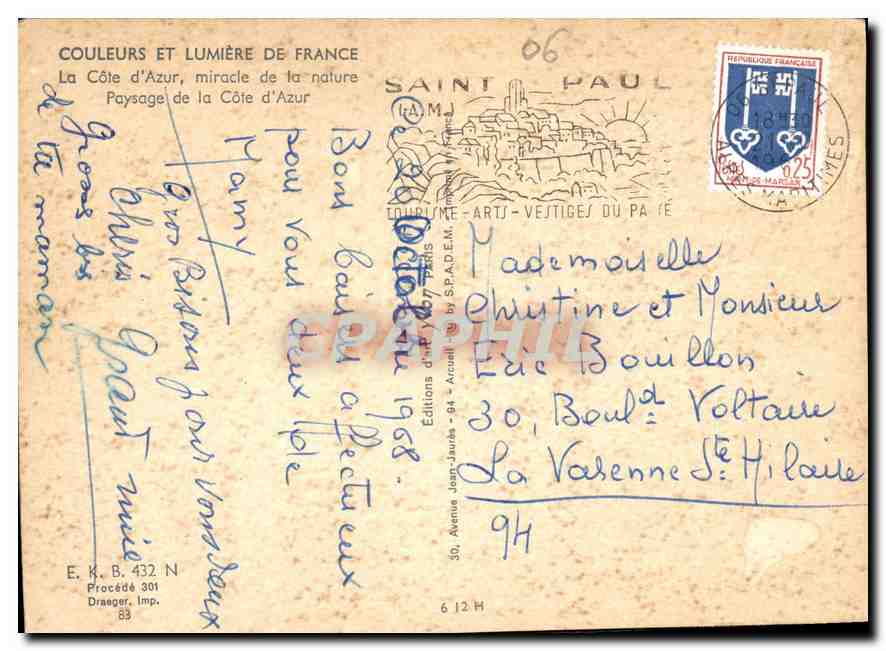 COULEURS ET LUMIÈRE DE FRANCE
La Côte d'Azur, miracle de la nature
Paysage de la Côte d'Azur
06
SAINT PAUL
(A.M.)
TOURISME-ARTS-VESTIGES DU PASSÉ
REPUBLIQUE FRANÇAISE
0,25
MONT-DE-MARSAN
18H
ALPES MARITIMES
Ce 20 Octobre 1968.
Bons baisers affectueux
pour vous deux de
Mamy
Gros Bisous pour Vous deux
chéris
Gros bis
de ta maman
Mademoiselle
Christine et Monsieur
Eric Bouillon
30, Boul.d Voltaire
La Varenne Ste Hilaire
94
Éditions d'art yvon PARIS
30, Avenue Jean-Jaurès - 94 - Arcueil - by S.P.A.D.E.M. Imprimé en France
CPAPHIL
E. K. B. 432 N
Procédé 301
Draeger, Imp.
83
6 12 H